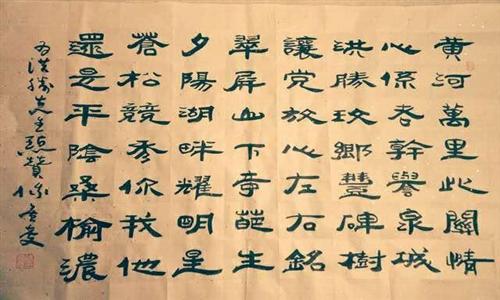 黄河萬里此關情
心係老幹譽泉城
洪勝玫鄉豐碑樹
讓党放心左右銘
翠屏山下奇葩生
夕陽湖畔耀明星
蒼松競秀你我他
還是平陰桑榆濃
为洪勝先生點贊